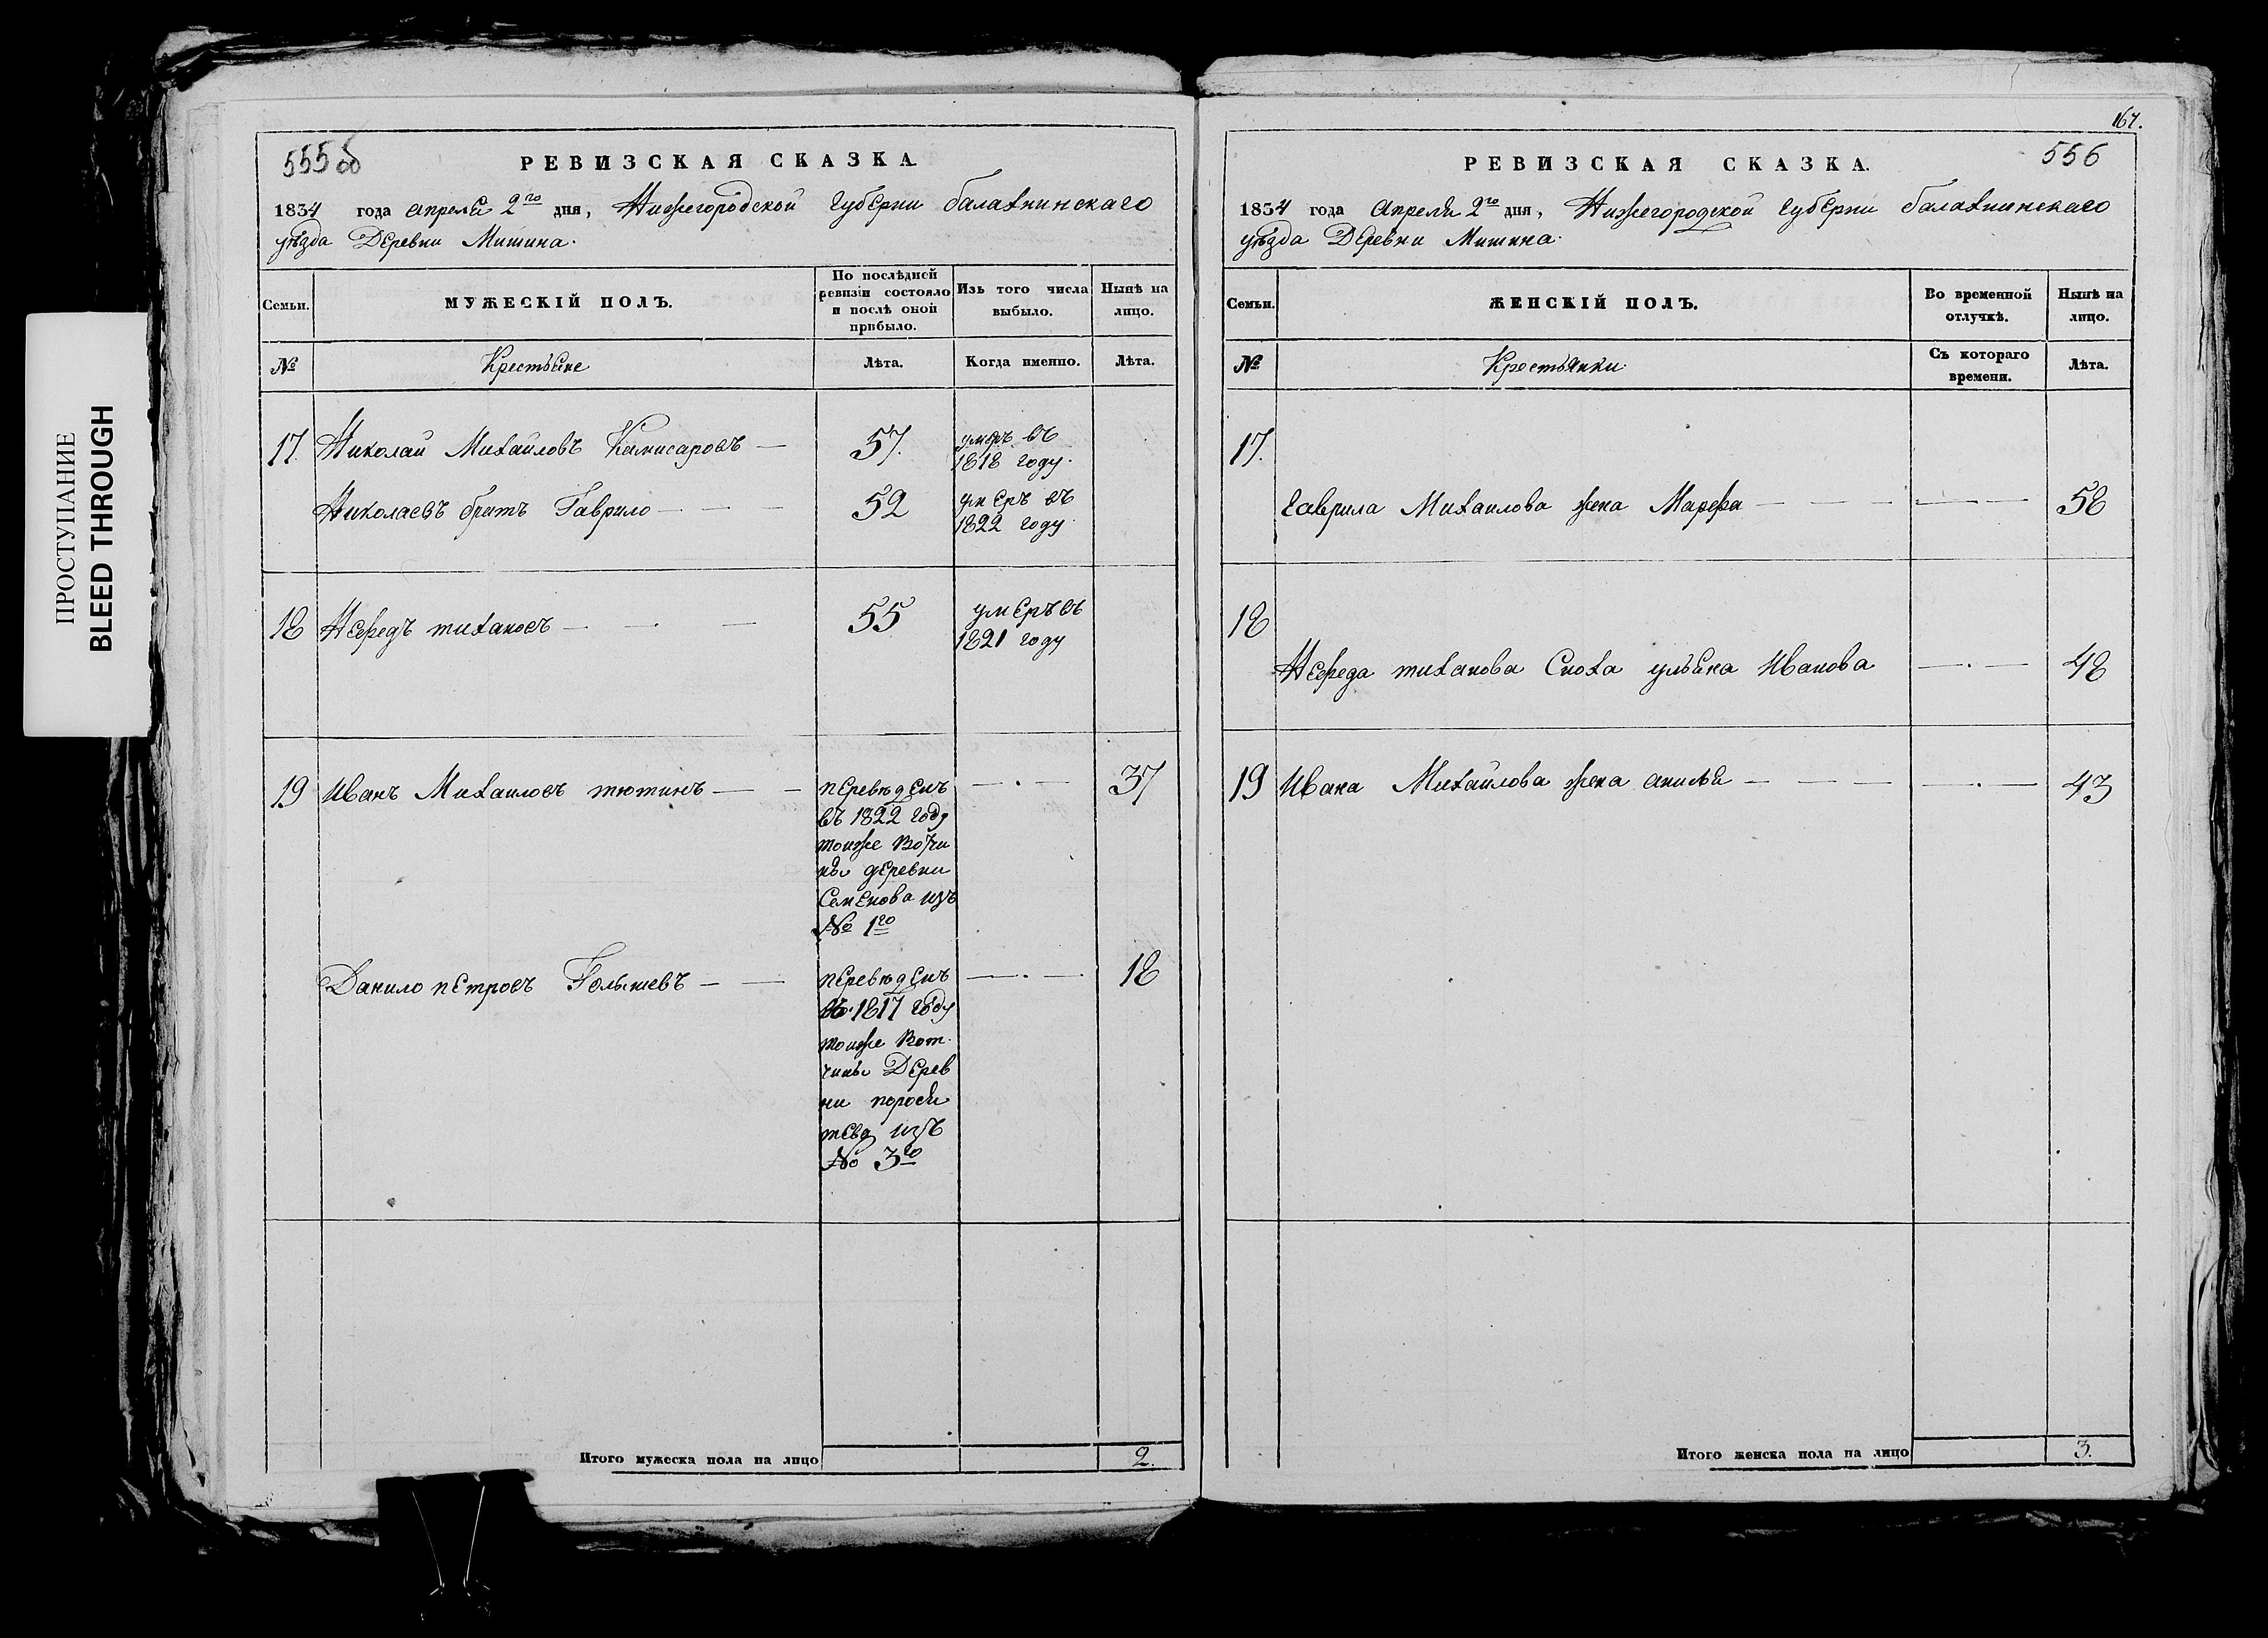 ПРОСТУПАНИЕ
BLEED THROUGH
555 об
РЕВИЗСКАЯ СКАЗКА
1834 года апреля 2го дня, Нижегородской губерни балахнинскаго
уѣзда Деревни Мишина.
Семьи.
МУЖЕСКІЙ ПОЛЪ.
По послѣдней ревизіи состояло и послѣ оной прибыло.
Изъ того числа выбыло.
Нынѣ на лицо.
№
Крестьяне
Лѣта.
Когда именно.
Лѣта.
17. Николай Михайловъ Камисаровъ — 57. умеръ въ
1818 году.
Николаевъ братъ Гаврило — 52 умеръ въ
1822 году.
18 Нефедъ тихановъ — 55 умеръ въ
1821 году
19 Иванъ Михаиловъ тютинъ — переведенъ — 37
въ 1822 году
тоиже вотчи
ны деревни
Семенова изъ
№ 1го
Данило петровъ Голышевъ — переведенъ — 18
въ 1817 году
тоиже вот
чины Дерев
ни
изъ
№ 3го
Итого мужеска пола на лицо 2.
167.
556
РЕВИЗСКАЯ СКАЗКА.
1834 года Апреля 2го дня, Нижегородской губерни балахнинскаго
уѣзда Деревни Мишина.
Семьи.
ЖЕНСКІЙ ПОЛЪ.
Во временной отлучкѣ.
Нынѣ на лицо.
№
Крестьянки.
Съ котораго времени.
Лѣта.
17.
гаврила Михаилова жена Марфа — 58
18
Нефеда тиханова Сноха ульяна Иванова — 48
19 Ивана Михайлова жена — 43
Итого женска пола на лицо 3.